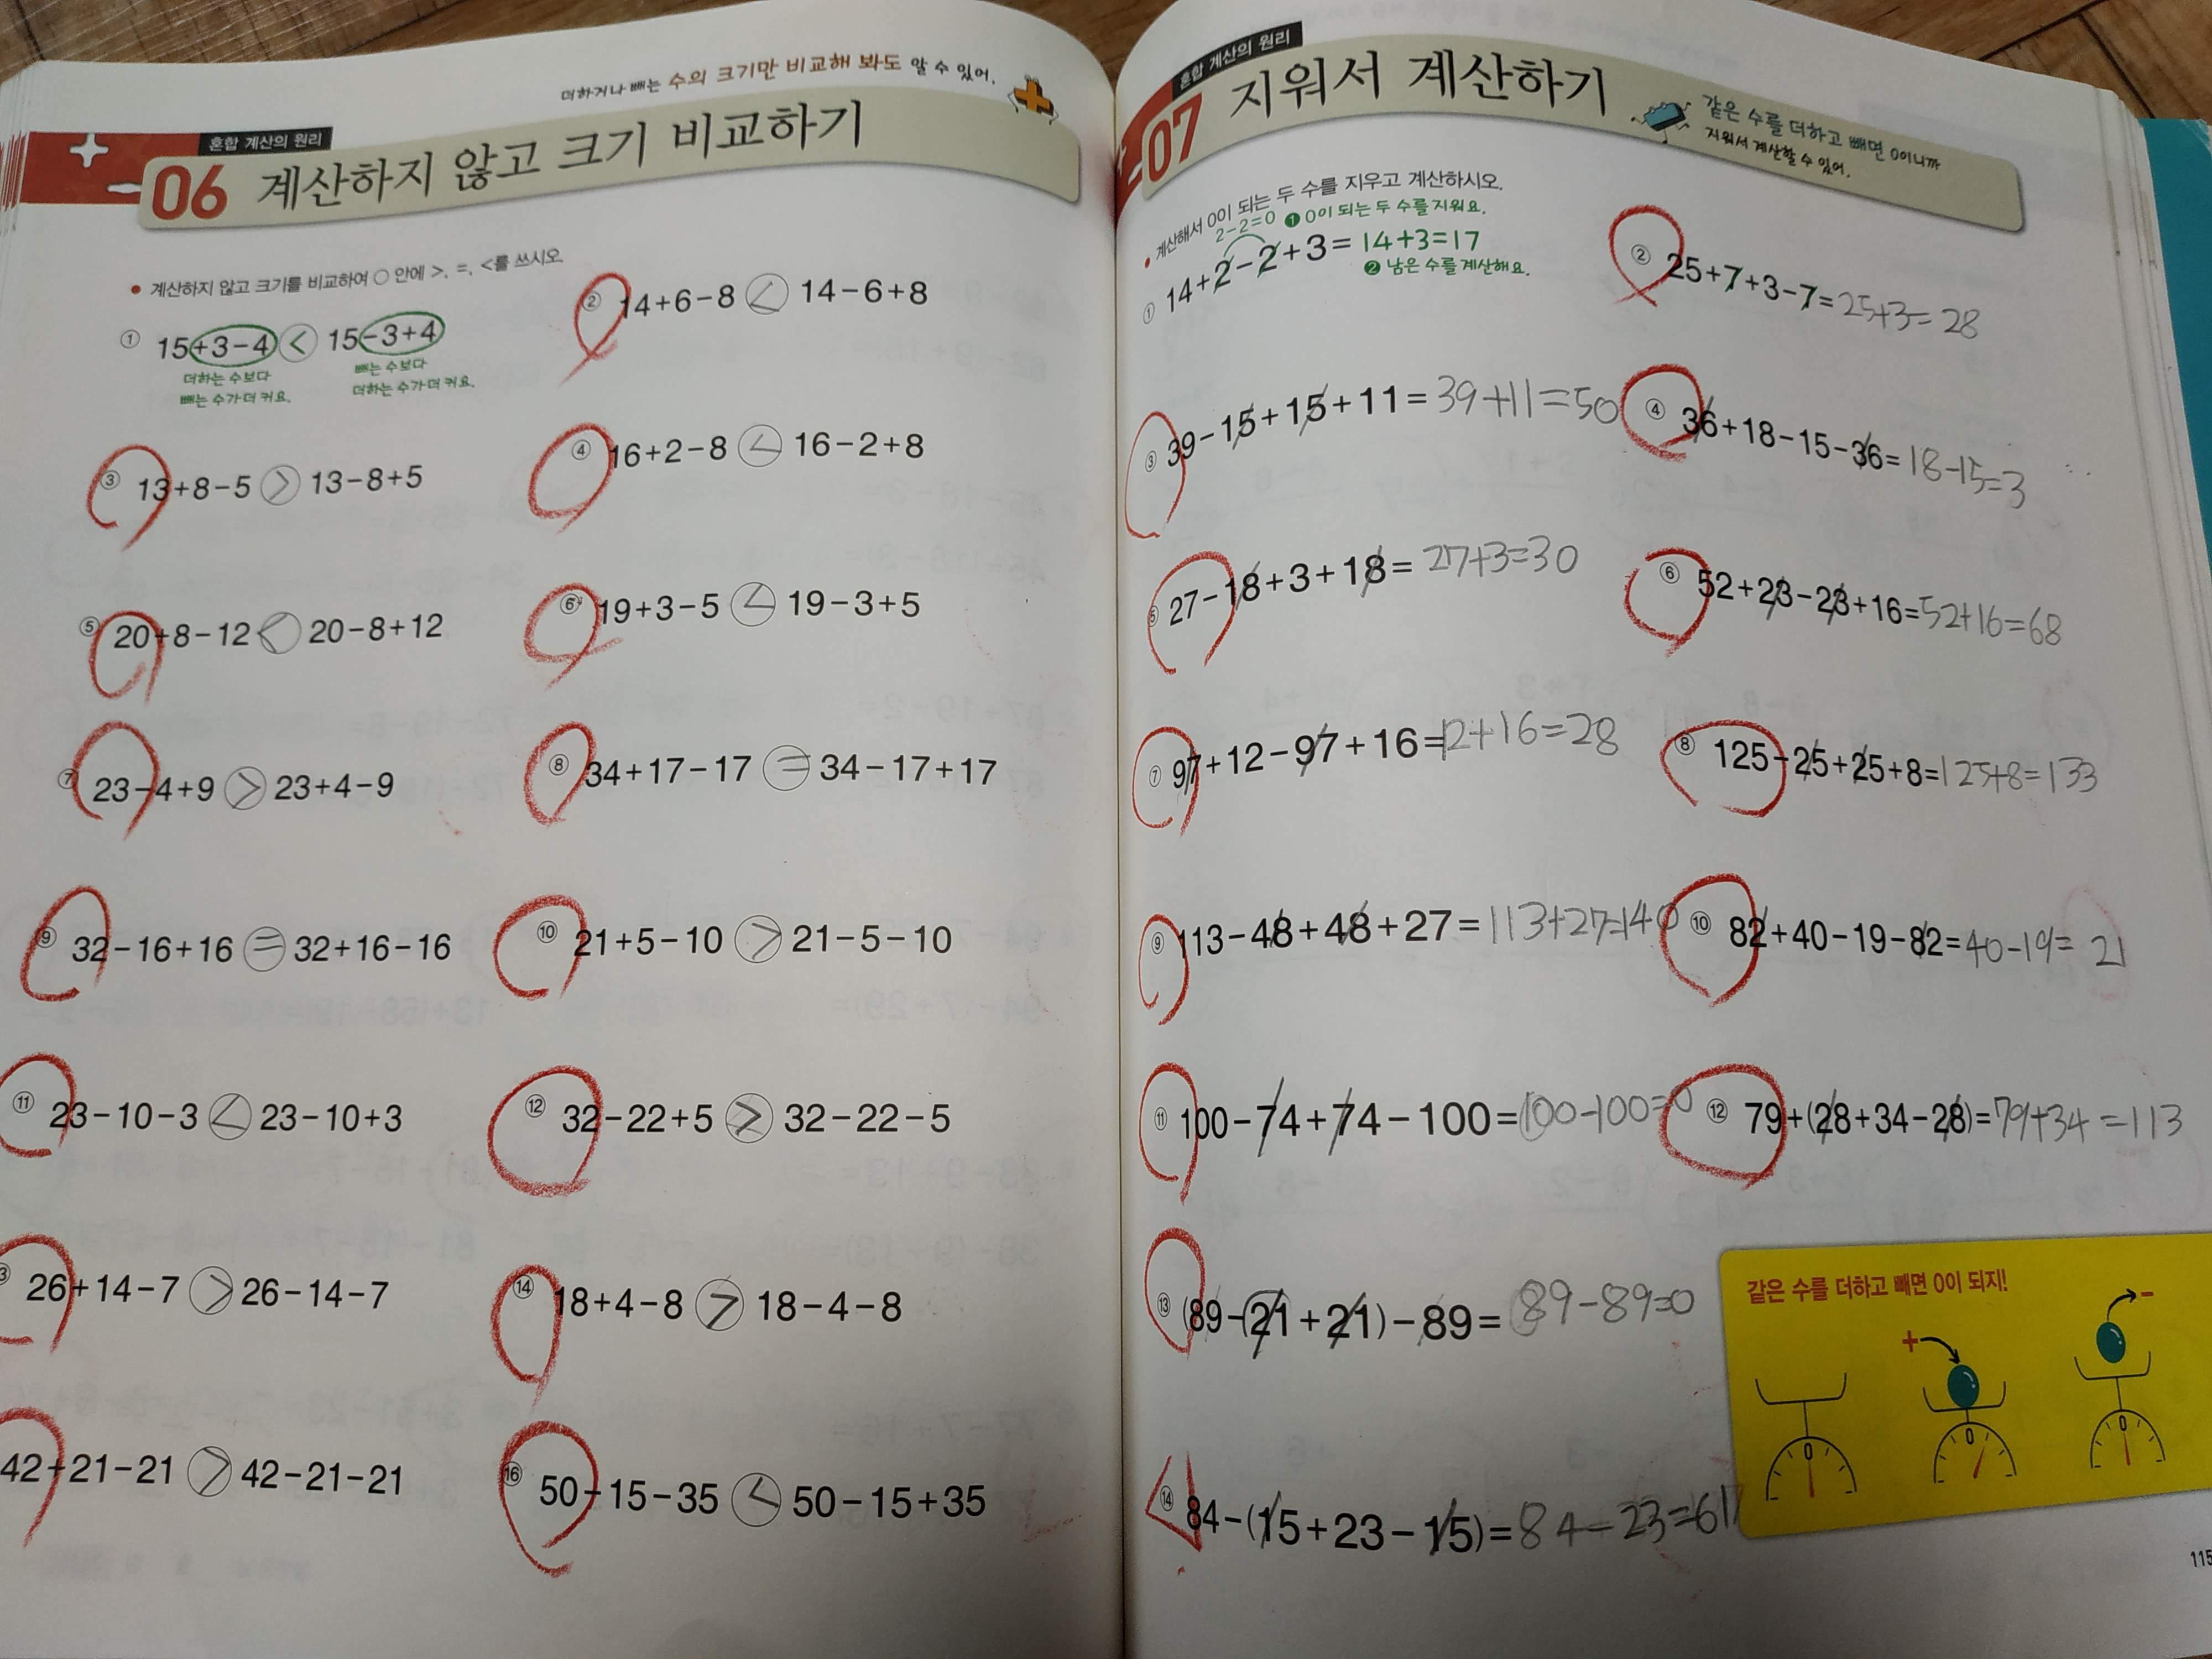 더하거나 빼는 수의 크기만 비교해 봐도 알 수 있어.
혼합 계산의 원리
06 계산하지 않고 크기 비교하기
• 계산하지 않고 크기를 비교하여 ○ 안에 >, =, <를 쓰시오.
① 15+3-4 < 15-3+4
더하는 수보다 빼는 수보다
빼는 수가 더 커요. 더하는 수가 더 커요.
② 14+6-8 < 14-6+8
③ 13+8-5 > 13-8+5
④ 16+2-8 < 16-2+8
⑤ 20+8-12 < 20-8+12
⑥ 19+3-5 < 19-3+5
⑦ 23-4+9 > 23+4-9
⑧ 34+17-17 = 34-17+17
⑨ 32-16+16 = 32+16-16
⑩ 21+5-10 > 21-5-10
⑪ 23-10-3 < 23-10+3
⑫ 32-22+5 > 32-22-5
26+14-7 > 26-14-7
⑭ 18+4-8 > 18-4-8
42+21-21 > 42-21-21
⑯ 50-15-35 < 50-15+35
혼합 계산의 원리
07 지워서 계산하기
같은 수를 더하고 빼면 0이니까
지워서 계산할 수 있어.
• 계산해서 0이 되는 두 수를 지우고 계산하시오.
2-2=0 ❶ 0이 되는 두 수를 지워요.
① 14+2-2+3= 14+3=17
❷ 남은 수를 계산해요.
② 25+7+3-7=25+3=28
③ 39-15+15+11=39+11=50
④ 36+18-15-36=18-15=3
⑤ 27-18+3+18=27+3=30
⑥ 52+23-23+16=52+16=68
⑦ 97+12-97+16=12+16=28
⑧ 125-25+25+8=125+8=133
⑨ 113-48+48+27=113+27=140
⑩ 82+40-19-82=40-19=21
⑪ 100-74+74-100=100-100=0
⑫ 79+(28+34-28)=79+34=113
⑬ (89-(21+21)-89=89-89=0
⑭ 84-(15+23-15)=84-23=61
같은 수를 더하고 빼면 0이 되지!
+ -
0 0 0
115